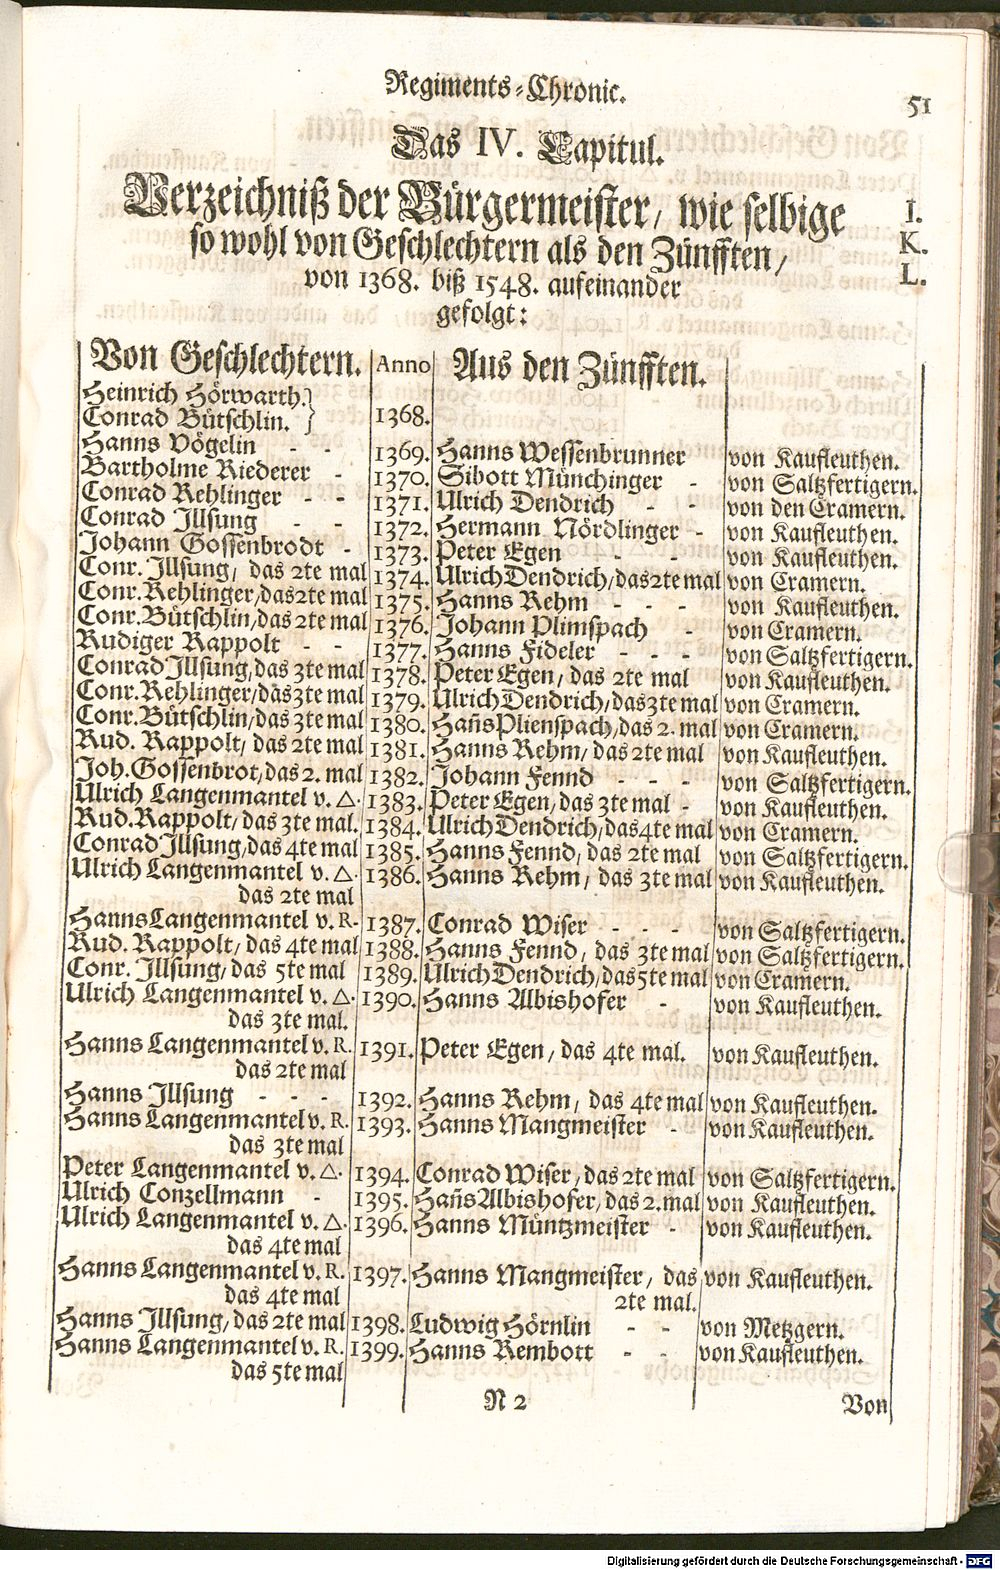 Regiments-Chronic.
51
Das IV. Capitul.
Verzeichniß der Bürgermeister/ wie selbige
so wohl von Geschlechtern als den Zünfften/
von 1368. biß 1548. aufeinander
gefolgt:
I.
K.
L.
Von Geschlechtern. Anno Aus den Zünfften.
Heinrich Hörwarth.
Conrad Bütschlin. } 1368.
Hanns Vögelin - - 1369. Hanns Wessenbrunner von Kaufleuthen.
Bartholme Riederer - 1370. Sibott Münchinger - von Saltzfertigern.
Conrad Rehlinger - - 1371. Ulrich Dendrich - - von den Cramern.
Conrad Illsung - - 1372. Hermann Nördlinger - von Kaufleuthen.
Johann Gossenbrodt - 1373. Peter Egen - - von Kaufleuthen.
Conr. Illsung/ das 2te mal 1374. Ulrich Dendrich/ das 2te mal von Cramern.
Conr. Rehlinger/ das 2te mal 1375. Hanns Rehm - - - von Kaufleuthen.
Conr. Bütschlin/ das 2te mal 1376. Johann Plimspach - von Cramern.
Rudiger Rappolt - - 1377. Hanns Fideler - - - von Saltzfertigern.
Conrad Illsung/ das 3te mal 1378. Peter Egen/ das 2te mal von Kaufleuthen.
Conr. Rehlinger/ das 3te mal 1379. Ulrich Dendrich/ das 3te mal von Cramern.
Conr. Bütschlin/ das 3te mal 1380. Hañs Plienspach/ das 2. mal von Cramern.
Rud. Rappolt/ das 2te mal 1381. Hanns Rehm/ das 2te mal von Kaufleuthen.
Joh. Gossenbrot/ das 2. mal 1382. Johann Fennd - - - von Saltzfertigern.
Ulrich Langenmantel v. △. 1383. Peter Egen/ das 3te mal - von Kaufleuthen.
Rud. Rappolt/ das 3te mal. 1384. Ulrich Dendrich/ das 4te mal von Cramern.
Conrad Illsung/ das 4te mal 1385. Hanns Fennd/ das 2te mal von Saltzfertigern.
Ulrich Langenmantel v. △. 1386. Hanns Rehm/ das 3te mal von Kaufleuthen.
das 2te mal
Hanns Langenmantel v. R. 1387. Conrad Wiser - - - von Saltzfertigern.
Rud. Rappolt/ das 4te mal 1388. Hanns Fennd/ das 3te mal von Saltzfertigern.
Conr. Illsung/ das 5te mal 1389. Ulrich Dendrich/ das 5te mal von Cramern.
Ulrich Langenmantel v. △. 1390. Hanns Albishofer - von Kaufleuthen.
das 3te mal.
Hanns Langenmantel v. R. 1391. Peter Egen/ das 4te mal. von Kaufleuthen.
das 2te mal
Hanns Illsung - - - 1392. Hanns Rehm/ das 4te mal von Kaufleuthen.
Hanns Langenmantel v. R. 1393. Hanns Mangmeister - von Kaufleuthen.
das 3te mal
Peter Langenmantel v. △. 1394. Conrad Wiser/ das 2te mal von Saltzfertigern.
Ulrich Conzellmann - 1395. Hañs Albishofer/ das 2. mal von Kaufleuthen.
Ulrich Langenmantel v. △. 1396. Hanns Müntzmeister - von Kaufleuthen.
das 4te mal
Hanns Langenmantel v. R. 1397. Hanns Mangmeister/ das von Kaufleuthen.
das 4te mal 2te mal.
Hanns Illsung/ das 2te mal 1398. Ludwig Hörnlin - - von Metzgern.
Hanns Langenmantel v. R. 1399. Hanns Rembott - - von Kaufleuthen.
das 5te mal
N 2 Von
Digitalisierung gefördert durch die Deutsche Forschungsgemeinschaft - DFG